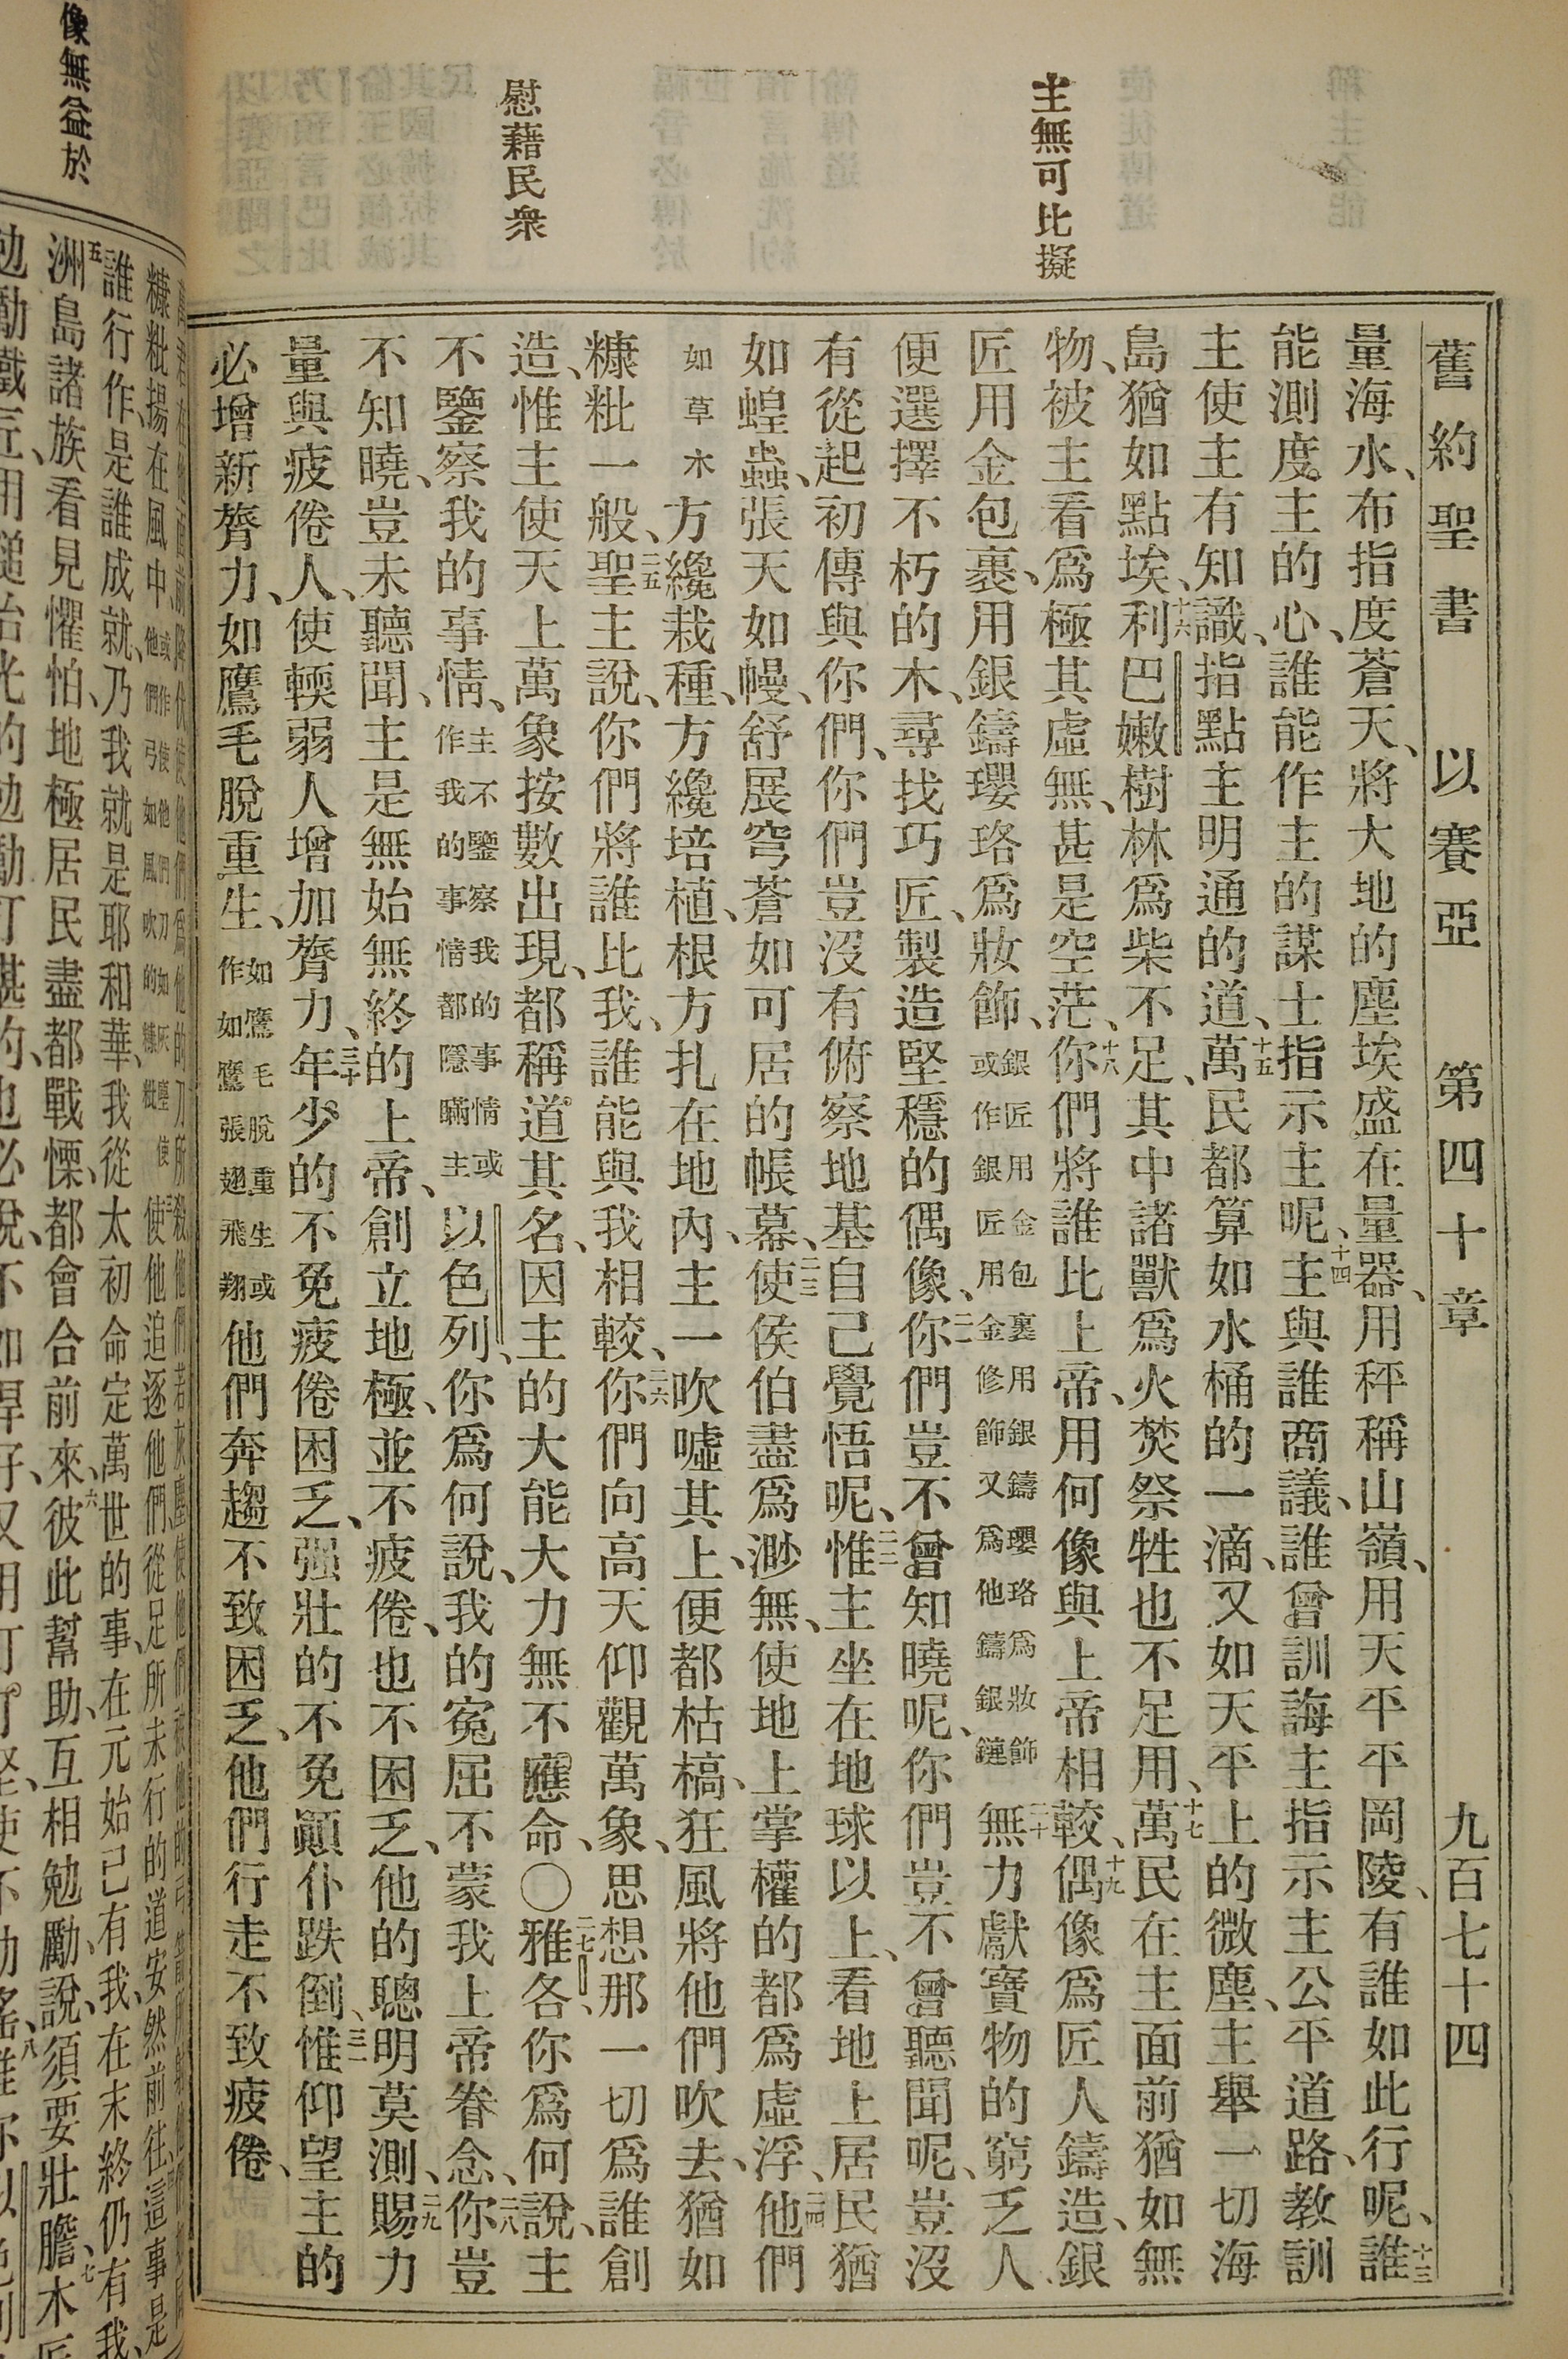 主無可比擬
慰藉民衆
舊約聖書 以賽亞 第四十章 九百七十四
量海水、布指度蒼天、將大地的塵埃盛在量器、用秤稱山嶺、用天平平岡陵、有誰如此行呢、十三誰
能測度主的心、誰能作主的謀士指示主呢、十四主與誰商議、誰曾訓誨主指示主公平道路、教訓
主使主有知識、指點主明通的道、十五萬民都算如水桶的一滴、又如天平上的微塵、主舉一切海
島猶如點埃、十六利巴嫩樹林爲柴不足、其中諸獸爲火焚祭牲也不足用、十七萬民在主面前猶如無
物、被主看爲極其虛無、甚是空茫、十八你們將誰比上帝、用何像與上帝相較、十九偶像爲匠人鑄造、銀
匠用金包裹、用銀鑄瓔珞爲妝飾、銀匠用金包裹用銀鑄瓔珞爲妝飾或作銀匠用金修飾又爲他鑄銀鏈二十無力獻寶物的窮乏人
便選擇不朽的木、尋找巧匠、製造堅穩的偶像、二一你們豈不曾知曉呢、你們豈不曾聽聞呢、豈沒
有從起初傳與你們、你們豈沒有俯察地基自己覺悟呢、二二惟主坐在地球以上、看地上居民猶
如蝗蟲、張天如幔、舒展穹蒼如可居的帳幕、二三使侯伯盡爲渺無、使地上掌權的都爲虛浮、二四他們
如草木方纔栽種、方纔培植、根方扎在地內、主一吹噓其上、便都枯槁、狂風將他們吹去、猶如
糠粃一般、二五聖主說、你們將誰比我、誰能與我相較、二六你們向高天仰觀萬象、思想那一切爲誰創
造、惟主使天上萬象按數出現、都稱道其名、因主的大能大力無不應命、〇二七雅各、你爲何說、主
不鑒察我的事情、主不鑒察我的事情或作我的事情都隱瞞主以色列、你爲何說、我的寃屈不蒙我上帝眷念、二八你豈
不知曉、豈未聽聞、主是無始無終的上帝、創立地極、並不疲倦、也不困乏、他的聰明莫測、二九賜力
量與疲倦人、使輭弱人增加膂力、三十年少的不免疲倦困乏、强壯的不免顚仆跌倒、三一惟仰望主的
必增新膂力、如鷹毛脫重生、如鷹毛脫重生或作如鷹張翅飛翔他們奔趨不致困乏、他們行走不致疲倦、
像無益於
誰行作、是誰成就、乃我就是耶和華、我從太初命定萬世的事、在元始已有我、在末終仍有我、
五洲島諸族看見懼怕、地極居民盡都戰慄、都會合前來、六彼此幫助、互相勉勵、說、須要壯膽、七木匠